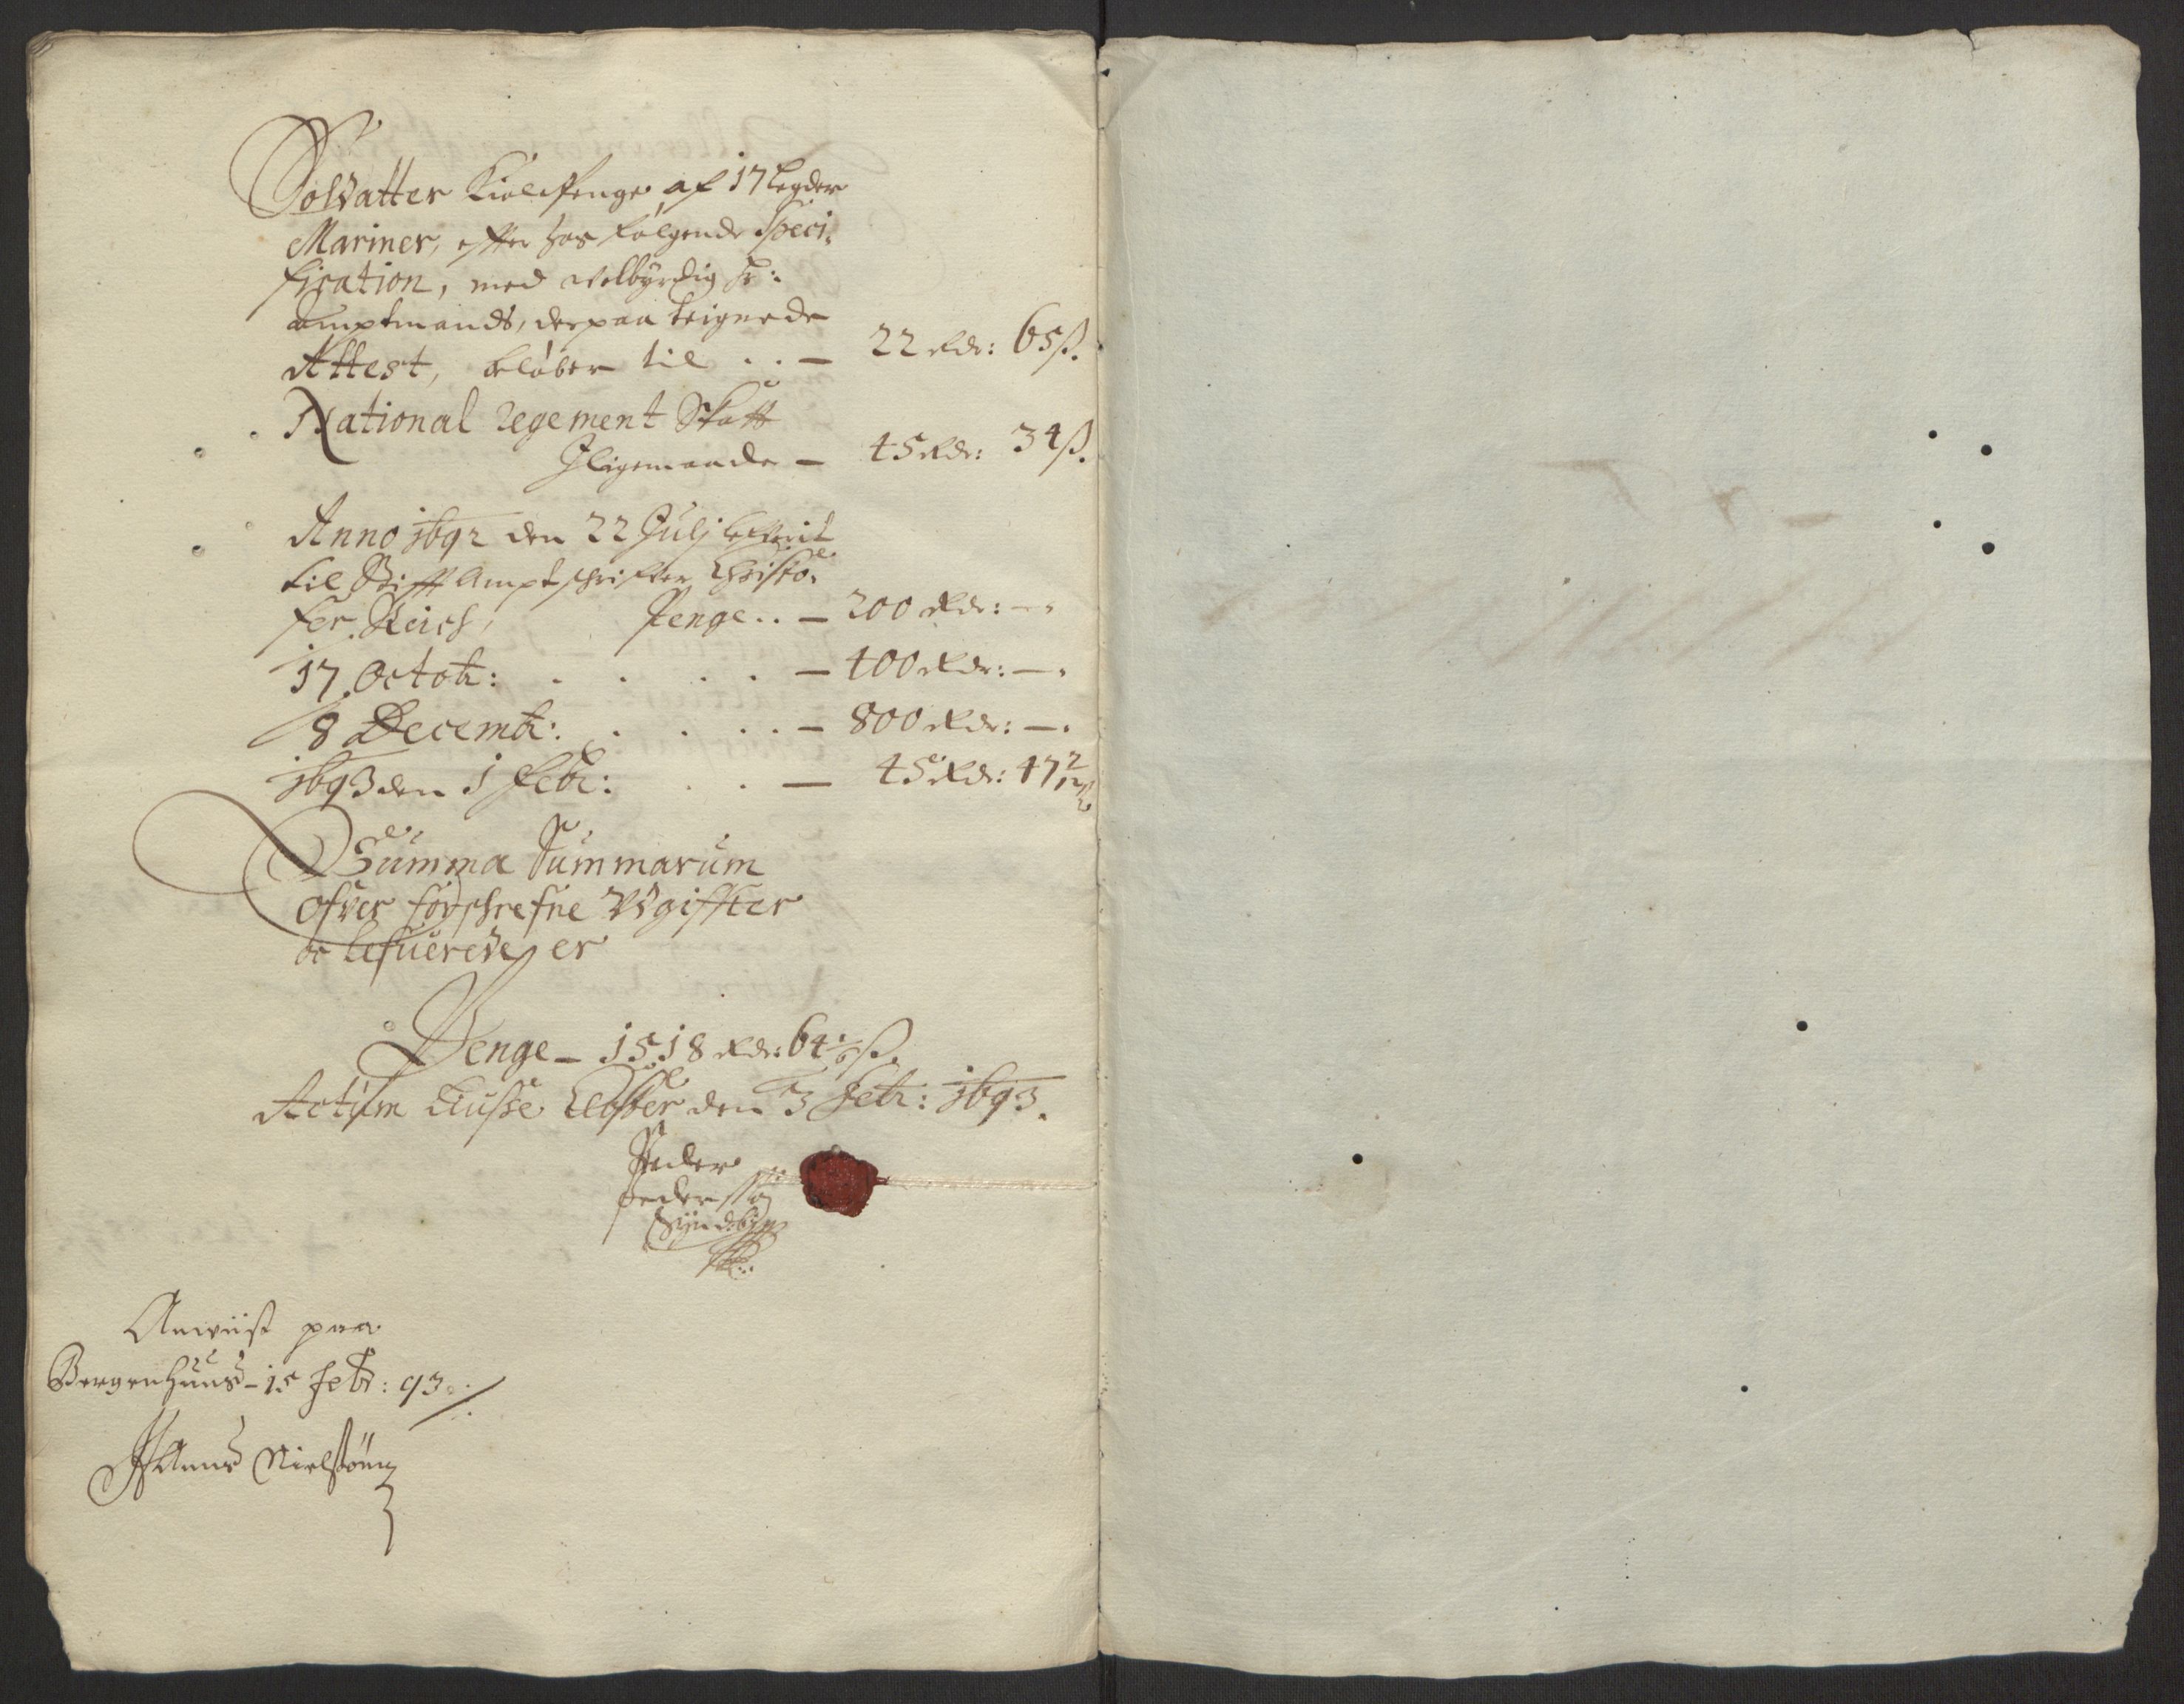 Soldatter Kiolepenge af 17 Legder
Mariner, efter hos følgende Speci-
fication, med velbyrdig Hr:
Amptmands, derpaa teignede
Attest, beløber til . . — 22 Rdr: 65 ß.
National Regement Skatt
Iligemaade — 45 Rdr: 34 ß.
Anno 1692 den 22 Julj lefverit
til Stifft Ampt schrifver Christo-
fer Reich, Penge . . — 200 Rdr: —
17 Octobr: . . . . — 400 Rdr: —
8 Decembr: . . . . — 800 Rdr: —
1693 den 1 Febr: . . — 45 Rdr: 47
Summa Summarum
ofver forschrefne Udgiffter
oc lefuerede, er
Penge — 1518 Rdr: 64 1/6 ß.
Actum Liusse Closter den 3 Febr: 1693.
Peder
Pederssøn
Anviist paa
Bergenhuus – 15 Febr: 93 ./.
Hanns Nielsønn